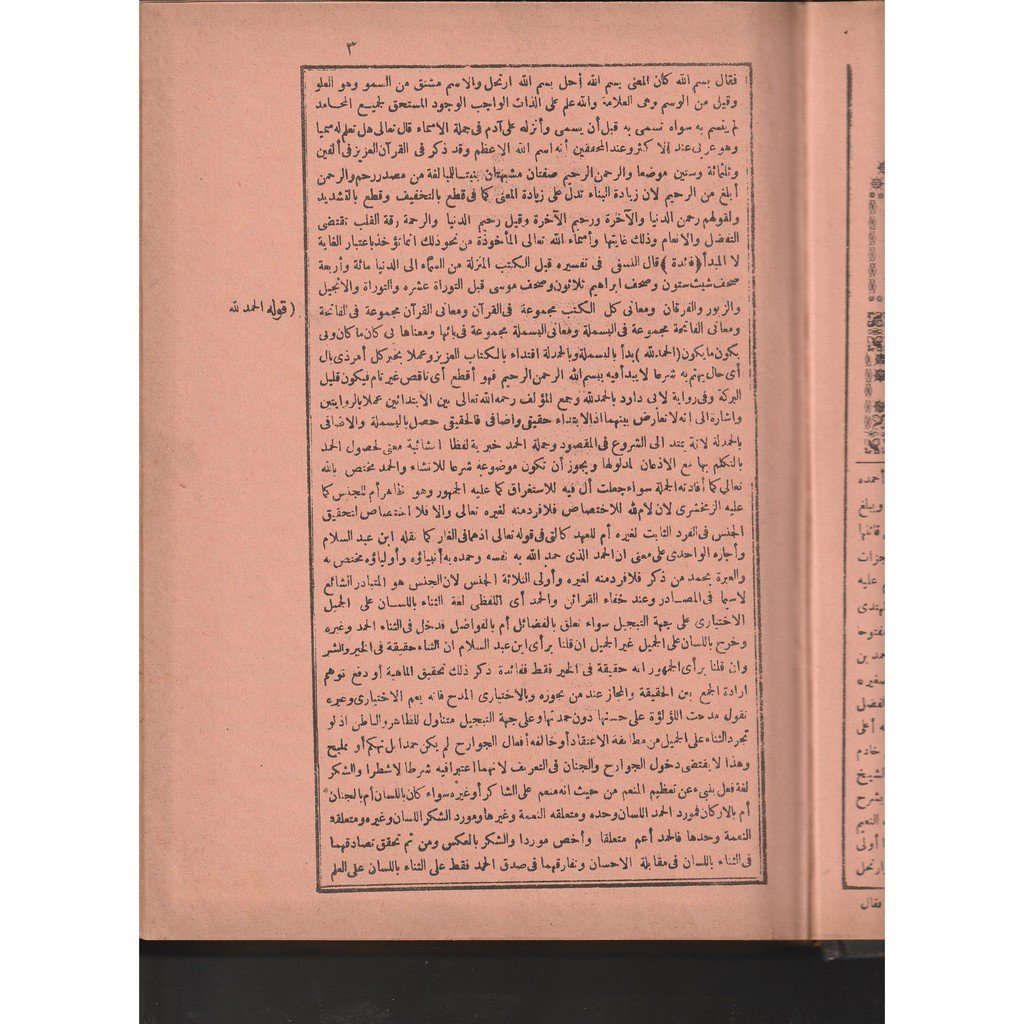 ٣
فقال بسم الله كان المعنى بسم الله أحل بسم الله ارتحل والاسم مشتق من السمو وهو العلو
وقيل من الوسم وهى العلامة والله علم على الذات الواجب الوجود المستحق لجميع المحامد
لم يتسم به سواه تسمى به قبل أن يسمى وأنزله على آدم فى جملة الاسماء قال تعالى هل تعلم له سميا
وهو عربى عند الاكثر وعند المحققين أنه اسم الله الاعظم وقد ذكر فى القرآن العزيز فى ألفين
وثلثمائة وستين موضعا والرحمن الرحيم صفتان مشبهتان بنيتا للمبالغة من مصدر رحم والرحمن
أبلغ من الرحيم لان زيادة البناء تدل على زيادة المعنى كما فى قطع بالتخفيف وقطع بالتشديد
ولقولهم رحمن الدنيا والآخرة ورحيم الآخرة وقيل رحيم الدنيا والرحمة رقة القلب تقتضى
التفضل والانعام وذلك غايتها وأسماء الله تعالى المأخوذة من نحو ذلك انما تؤخذ باعتبار الغاية
لا المبدأ (فائدة) قال النسفى فى تفسيره قيل الكتب المنزلة من السماء الى الدنيا مائة وأربعة
صحف شيث ستون وصحف ابراهيم ثلاثون وصحف موسى قبل التوراة عشره والتوراة والانجيل
والزبور والفرقان ومعانى كل الكتب مجموعة فى القرآن ومعانى القرآن مجموعة فى الفاتحة
(قوله الحمد لله
ومعانى الفاتحة مجموعة فى البسملة ومعانى البسملة مجموعة فى بائها ومعناها بى كان ما كان وبى
يكون ما يكون (الحمد لله) بدأ بالبسملة وبالحمدلة اقتداء بالكتاب العزيز وعملا بخبر كل أمر ذى بال
أى حال يهتم به شرعا لا يبدأ فيه ببسم الله الرحمن الرحيم فهو أقطع أى ناقص غير تام فيكون قليل
البركة وفى رواية لابى داود بالحمد لله وجمع المؤلف رحمه الله تعالى بين الابتدائين عملا بالروايتين
واشارة الى انه لا تعارض بينهما اذ الابتداء حقيقى واضافى فالحقيقى حصل بالبسملة والاضافى
بالحمدلة لانه يمتد الى الشروع فى المقصود وجملة الحمد خبرية لفظا انشائية معنى لحصول الحمد
بالتكلم بها مع الاذعان لمدلولها ويجوز أن تكون موضوعة شرعا للانشاء والحمد مختص بالله
تعالى كما أفادته الجملة سواء جعلت أل فيه للاستغراق كما عليه الجمهور وهو ظاهر أم للجنس كما
عليه الزمخشرى لان لام لله للاختصاص فلا فرد منه لغيره تعالى والا فلا اختصاص لتحقيق
الجنس فى الفرد الثابت لغيره أم للعهد كالتى فى قوله تعالى اذ هما فى الغار كما نقله ابن عبد السلام
وأجازه الواحدى على معنى ان الحمد الذى حمد الله به نفسه وحمده به أنبياؤه وأولياؤه مختص به
والعبرة بحمد من ذكر فلا فرد منه لغيره وأولى الثلاثة الجنس لان الجنس هو المتبادر الشائع
لاسيما فى المصادر وعند خفاء القرائن والحمد أى اللفظى لغة الثناء باللسان على الجميل
الاختيارى على جهة التبجيل سواء تعلق بالفضائل أم بالفواضل فدخل فى الثناء الحمد وغيره
وخرج باللسان على الجميل غير الجميل ان قلنا برأى ابن عبد السلام ان الثناء حقيقة فى الخير والشر
وان قلنا برأى الجمهور انه حقيقة فى الخير فقط ففائدة ذكر ذلك تحقيق الماهية أو دفع توهم
ارادة الجمع بين الحقيقة والمجاز عند من يجوزه وبالاختيارى المدح فانه يعم الاختيارى وغيره
تقول مدحت اللؤلؤة على حسنها دون حمدتها وعلى جهة التبجيل متناول للظاهر والباطن اذ لو
تجرد الثناء على الجميل من مطابقة الاعتقاد أو خالفه أفعال الجوارح لم يكن حمدا بل تهكم أو تمليح
وهذا لا يقتضى دخول الجوارح والجنان فى التعريف لانهما اعتبرا فيه شرطا لا شطرا والشكر
لغة فعل ينبىء عن تعظيم المنعم من حيث انه منعم على الشاكر أو غيره سواء كان باللسان أم بالجنان
أم بالاركان فمورد الحمد اللسان وحده ومتعلقه النعمة وغيرها ومورد الشكر اللسان وغيره ومتعلقه
النعمة وحدها فالحمد أعم متعلقا وأخص موردا والشكر بالعكس ومن ثم تحقق تصادقهما
فى الثناء باللسان فى مقابلة الاحسان وتفارقهما فى صدق الحمد فقط على الثناء باللسان على العلم
أحمده
ويبلغ
قائلها
عليه
خادم
الشيخ
بشرح
النعيم
أولى
ارتحل
فقال